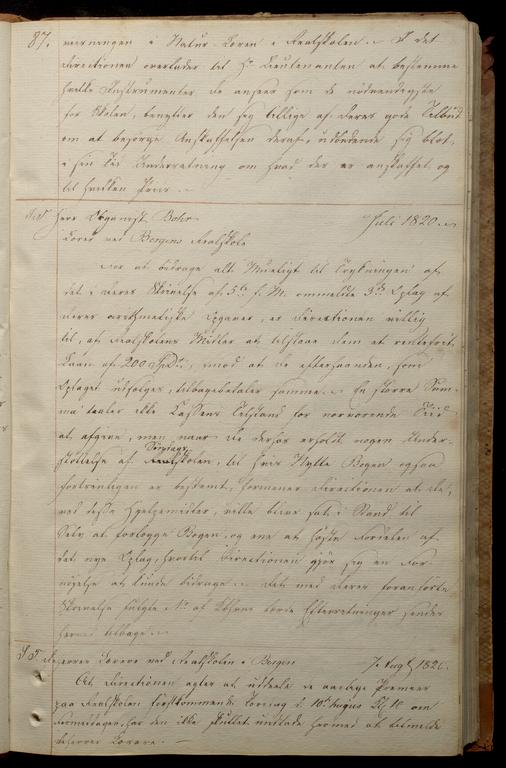 87.
værningen i Natur-Læren i Realskolen. I det
Directionen overlader til Hr Lieutenanten at bestemme
hvilke Instrumenter de ansees som de nødvendigste
for Skolen, benytter den sig tillige af Deres gode Tilbud
om at besørge Anskaffelsen deraf, udbedende sig blot,
i sin Tid Underretning om hvad der er anskaffet og
til hvilken Priis.
S.T. Herr Organist Bohr Juli 1820.
Lærer ved Bergens Realskole
For at bidrage alt Mueligt til Trykningen af
det i Deres Skrivelse af 5te f. M. ommeldte 3die Oplag af
Deres arithmetiske Opgaver, er Directionen villig
til, af Realskolens Midler at tilstaae Dem et rentefrit
Laan af 200 SpDr, imod at De efterhaanden, som
Oplaget udsælges, tilbagebetaler samme. En større Sum-
ma taaler ikke Cassens Tilstand for nærværende Tiid
at afgive, men naar De derfor erholdt nogen Under-
Søndags
støttelse af Realskolen, til hvis Nytte Bogen ogsaa
fortrinligen er bestemt, formener Directionen at De,
ved disse Hjelpemidler, ville blive sat i Stand til
Selv at forlægge Bogen, og ene at høste Fordelen af
det nye Oplag, hvortil Directionen gjør sig en For-
nøielse at kunde bidrage. Det med Deres foranførte
Skrivelse fulgte No af Efterretninger sendes
hermed tilbage.
S.T. Herrer Lærere ved Realskolen i Bergen 7 Augt 1820.
At Directionen agter at uddeele de aarlige Præmier
paa Realskolen førstkommende Torsdag d. 10de August Kl. 10 om
Formiddagen, har den ikke skullet undlade hermed at tilmelde
de Herrer Lærere.